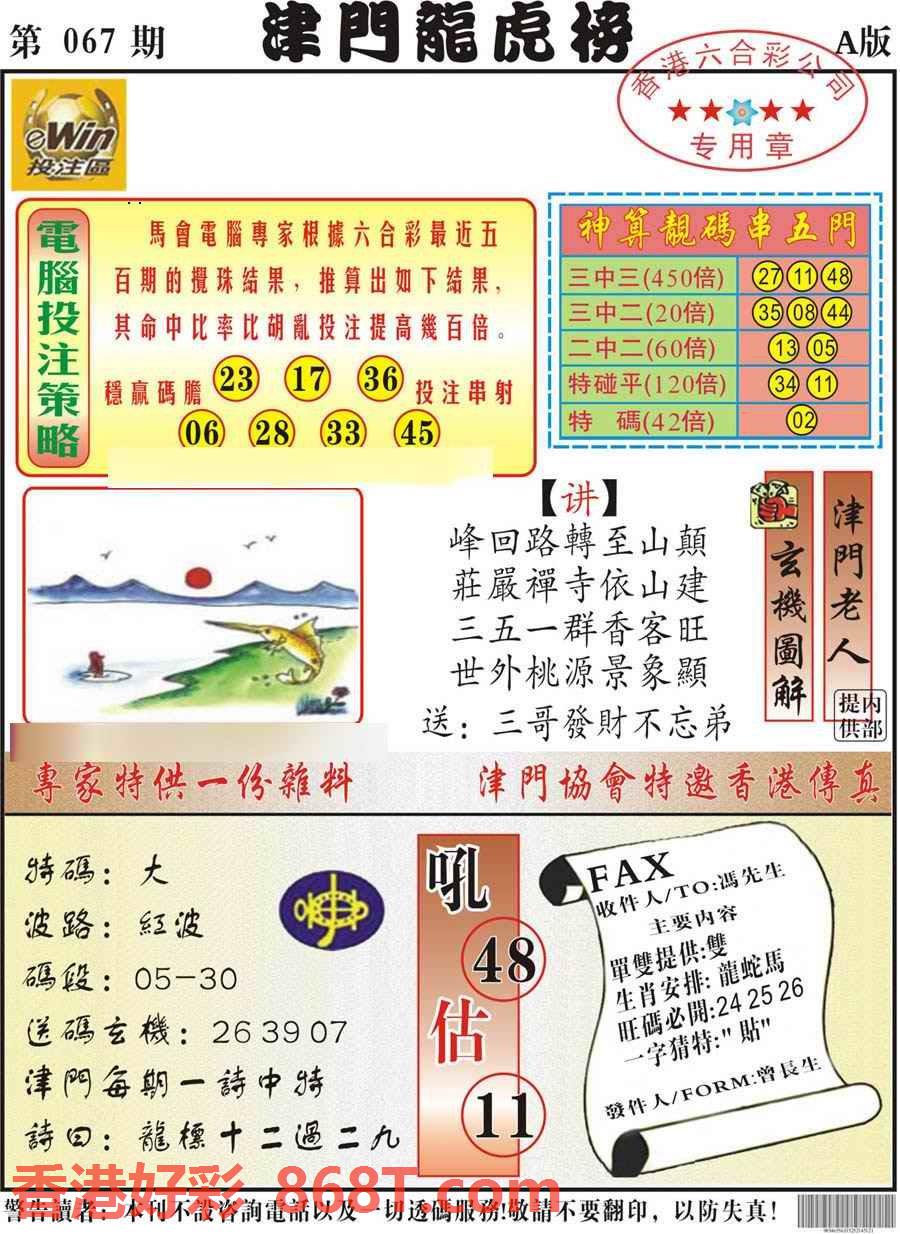 第 067 期
津門龍虎榜
A版
香港六合彩公司
★★★★
专用章
eWin
投注區
電腦投注策略
馬會電腦專家根據六合彩最近五
百期的攪珠結果，推算出如下結果，
其命中比率比胡亂投注提高幾百倍。
穩贏碼膽 23 17 36 投注串射
06 28 33 45
神算靚碼串五門
三中三(450倍) 27 11 48
三中二(20倍) 35 08 44
二中二(60倍) 13 05
特碰平(120倍) 34 11
特 碼(42倍) 02
【讲】
峰回路轉至山顛
莊嚴禪寺依山建
三五一群香客旺
世外桃源景象顯
送：三哥發財不忘弟
玄機圖解
津門老人
提供
内部
專家特供一份雜料
津門協會特邀香港傳真
特碼：大
波路：紅波
碼段：05-30
送碼玄機：26 39 07
津門每期一詩中特
詩曰：龍標十二過二九
吼
48
估
11
FAX
收件人/TO:馮先生
主要内容
單雙提供:雙
生肖安排:龍蛇馬
旺碼必開:24 25 26
一字猜特:"貼"
發件人/FORM:曾長生
香港好彩 868T.com
警告讀者：本刊不設咨詢電話以及一切透碼服務!敬請不要翻印，以防失真!